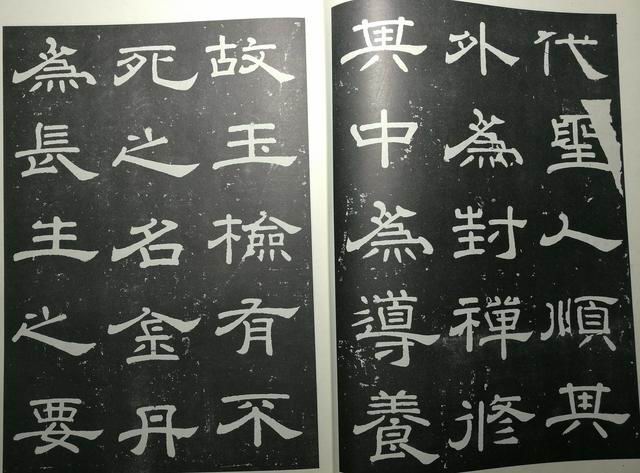 代聖人順其
外為封禪修
其中為導養
故玉檢有不
死之名金丹
為長生之要